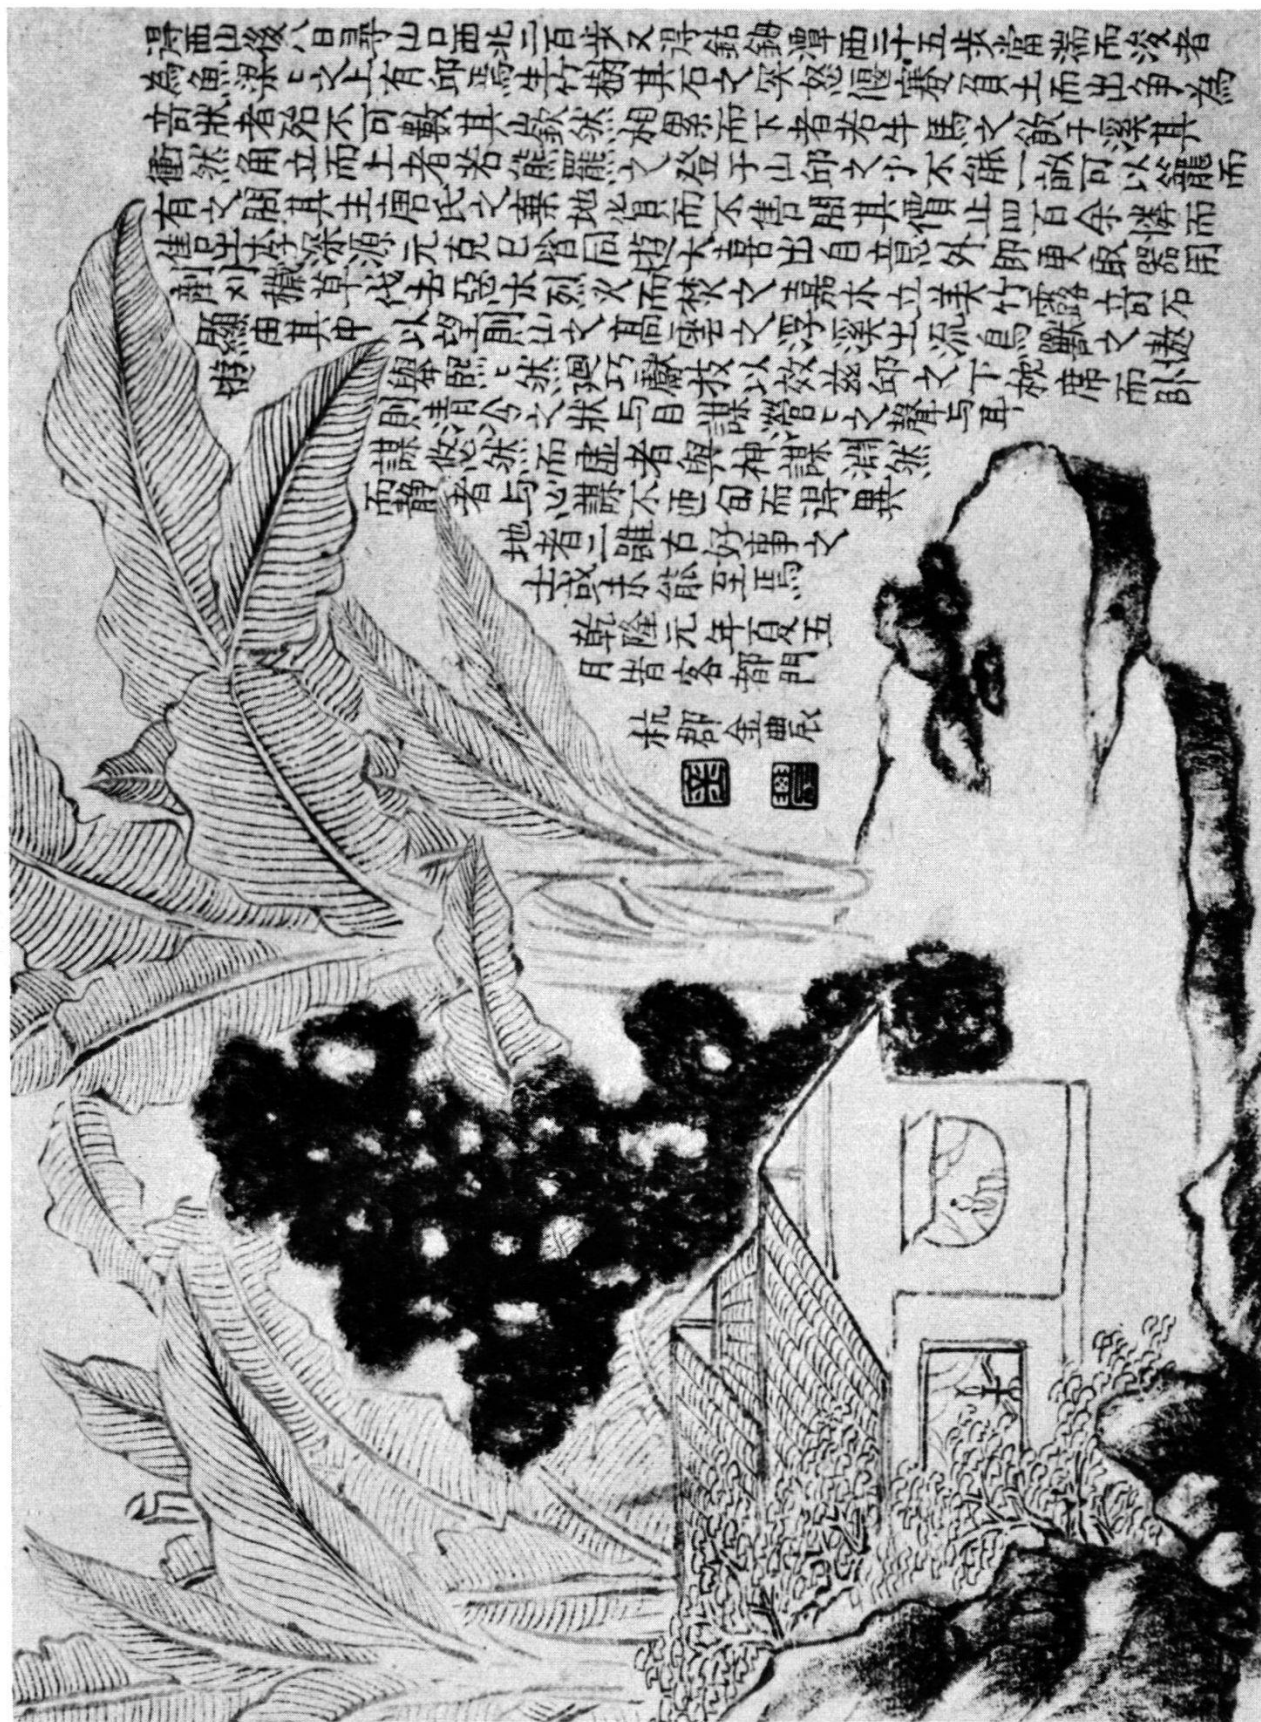 得西山後八日尋山口西北二百步又得鈷鉧潭西二十五步當湍而浚者
為魚梁〻之上有邱焉生竹樹其石之突怒偃蹇負土而出爭為
奇狀者殆不可數其嶔然相累而下者若牛馬之飲于溪其
衝然角立而上者若熊羆之登于山邱之小不能一畝可以籠而
有之問其主唐氏之棄地貨而不售問其價止四百余憐而
售之李深源元克已皆同遊大喜出自意外即更取器用
剷刈穢草伐去惡木烈火而焚之嘉木立美竹露奇石
顯由其中以望則山之高雲之浮溪之流鳥獸之遨
遊舉熙〻然迴巧獻技以效茲邱之下枕席而卧
則清泠之狀与目謀瀯〻之聲与耳
謀悠然而虛者與神謀淵然
而靜者与心謀不匝旬而得異
地者二雖古好事之
士或未能至焉
乾隆元年夏五
月皆客都門
杭郡金農